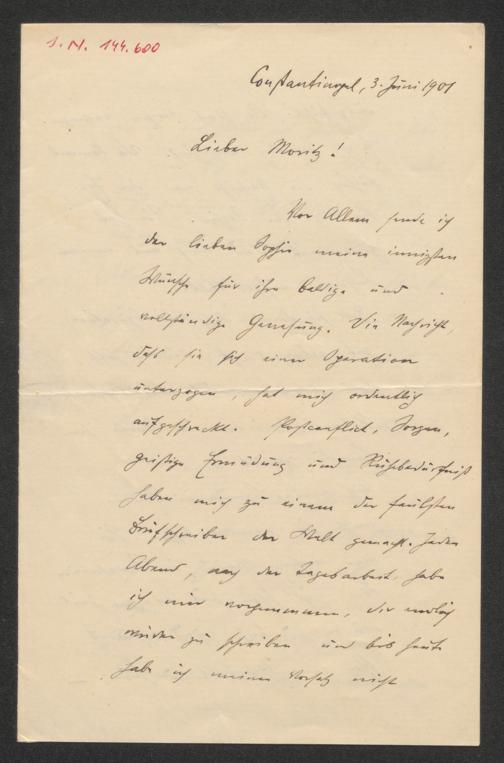 I. N. 144.600
Constantinopel, 3. Juni 1901
Lieber Moritz!
Vor Allem sende ich
der lieben Sophie meine innigsten
Wünsche für ihre baldige und
vollständige Genesung. Die Nachricht,
daß sie sich einer Operation
unterzogen, hat mich ordentlich
aufgeschreckt. Postconflict, Sorgen,
geistige Ermüdung und Ruhebedürfniß
haben mich zu einem der faulsten
Briefschreiber der Welt gemacht. Jeden
Abend, nach der Tagesarbeit, habe
ich mir vorgenommen, Dir endlich
wieder zu schreiben und bis heute
habe ich meinen Vorsatz nicht